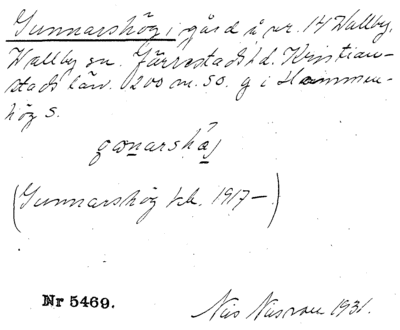 Gunnarshög i gård å nr. 14 Wallby,
Wallby sn. Järrestads hd. Kristian-
stads län. 200 m. SO. g i Hammen-
hög s.
(Gunnarshög kb. 1917—)
Nr 5469.
Nils 1931.